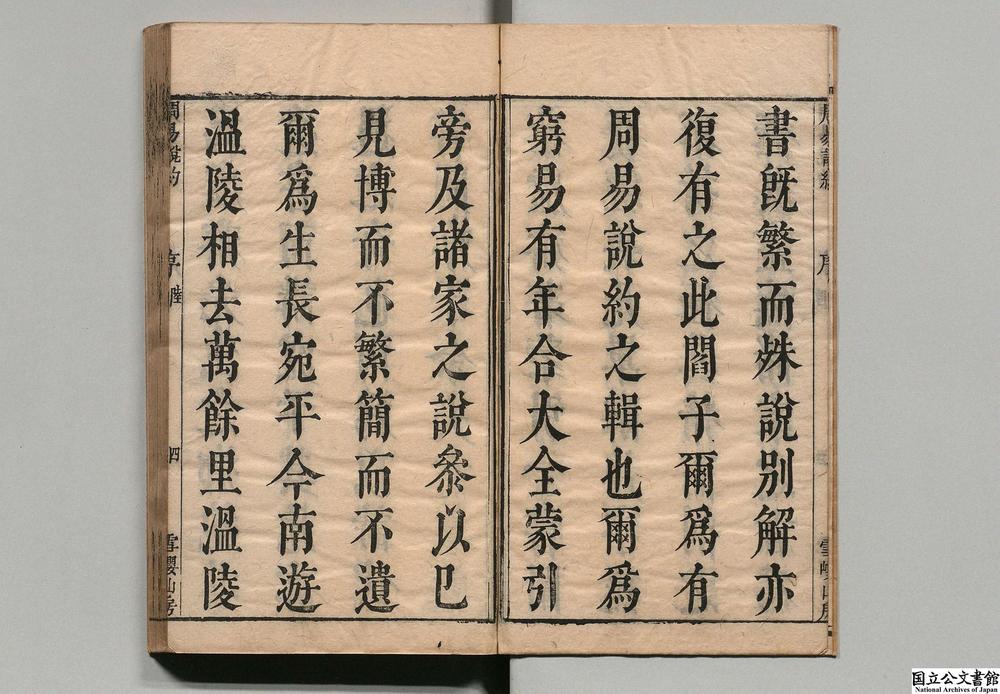 書旣繁而姝說別解亦
復有之此閻子爾爲有
周易說約之輯也爾爲
窮易有年合大全蒙引
旁及諸家之說叅以巳
見博而不繁簡而不遺
爾爲生長宛平今南遊
溫陵相去萬餘里溫陵
周易說約
序
四
国立公文書館
National Archives of Japan